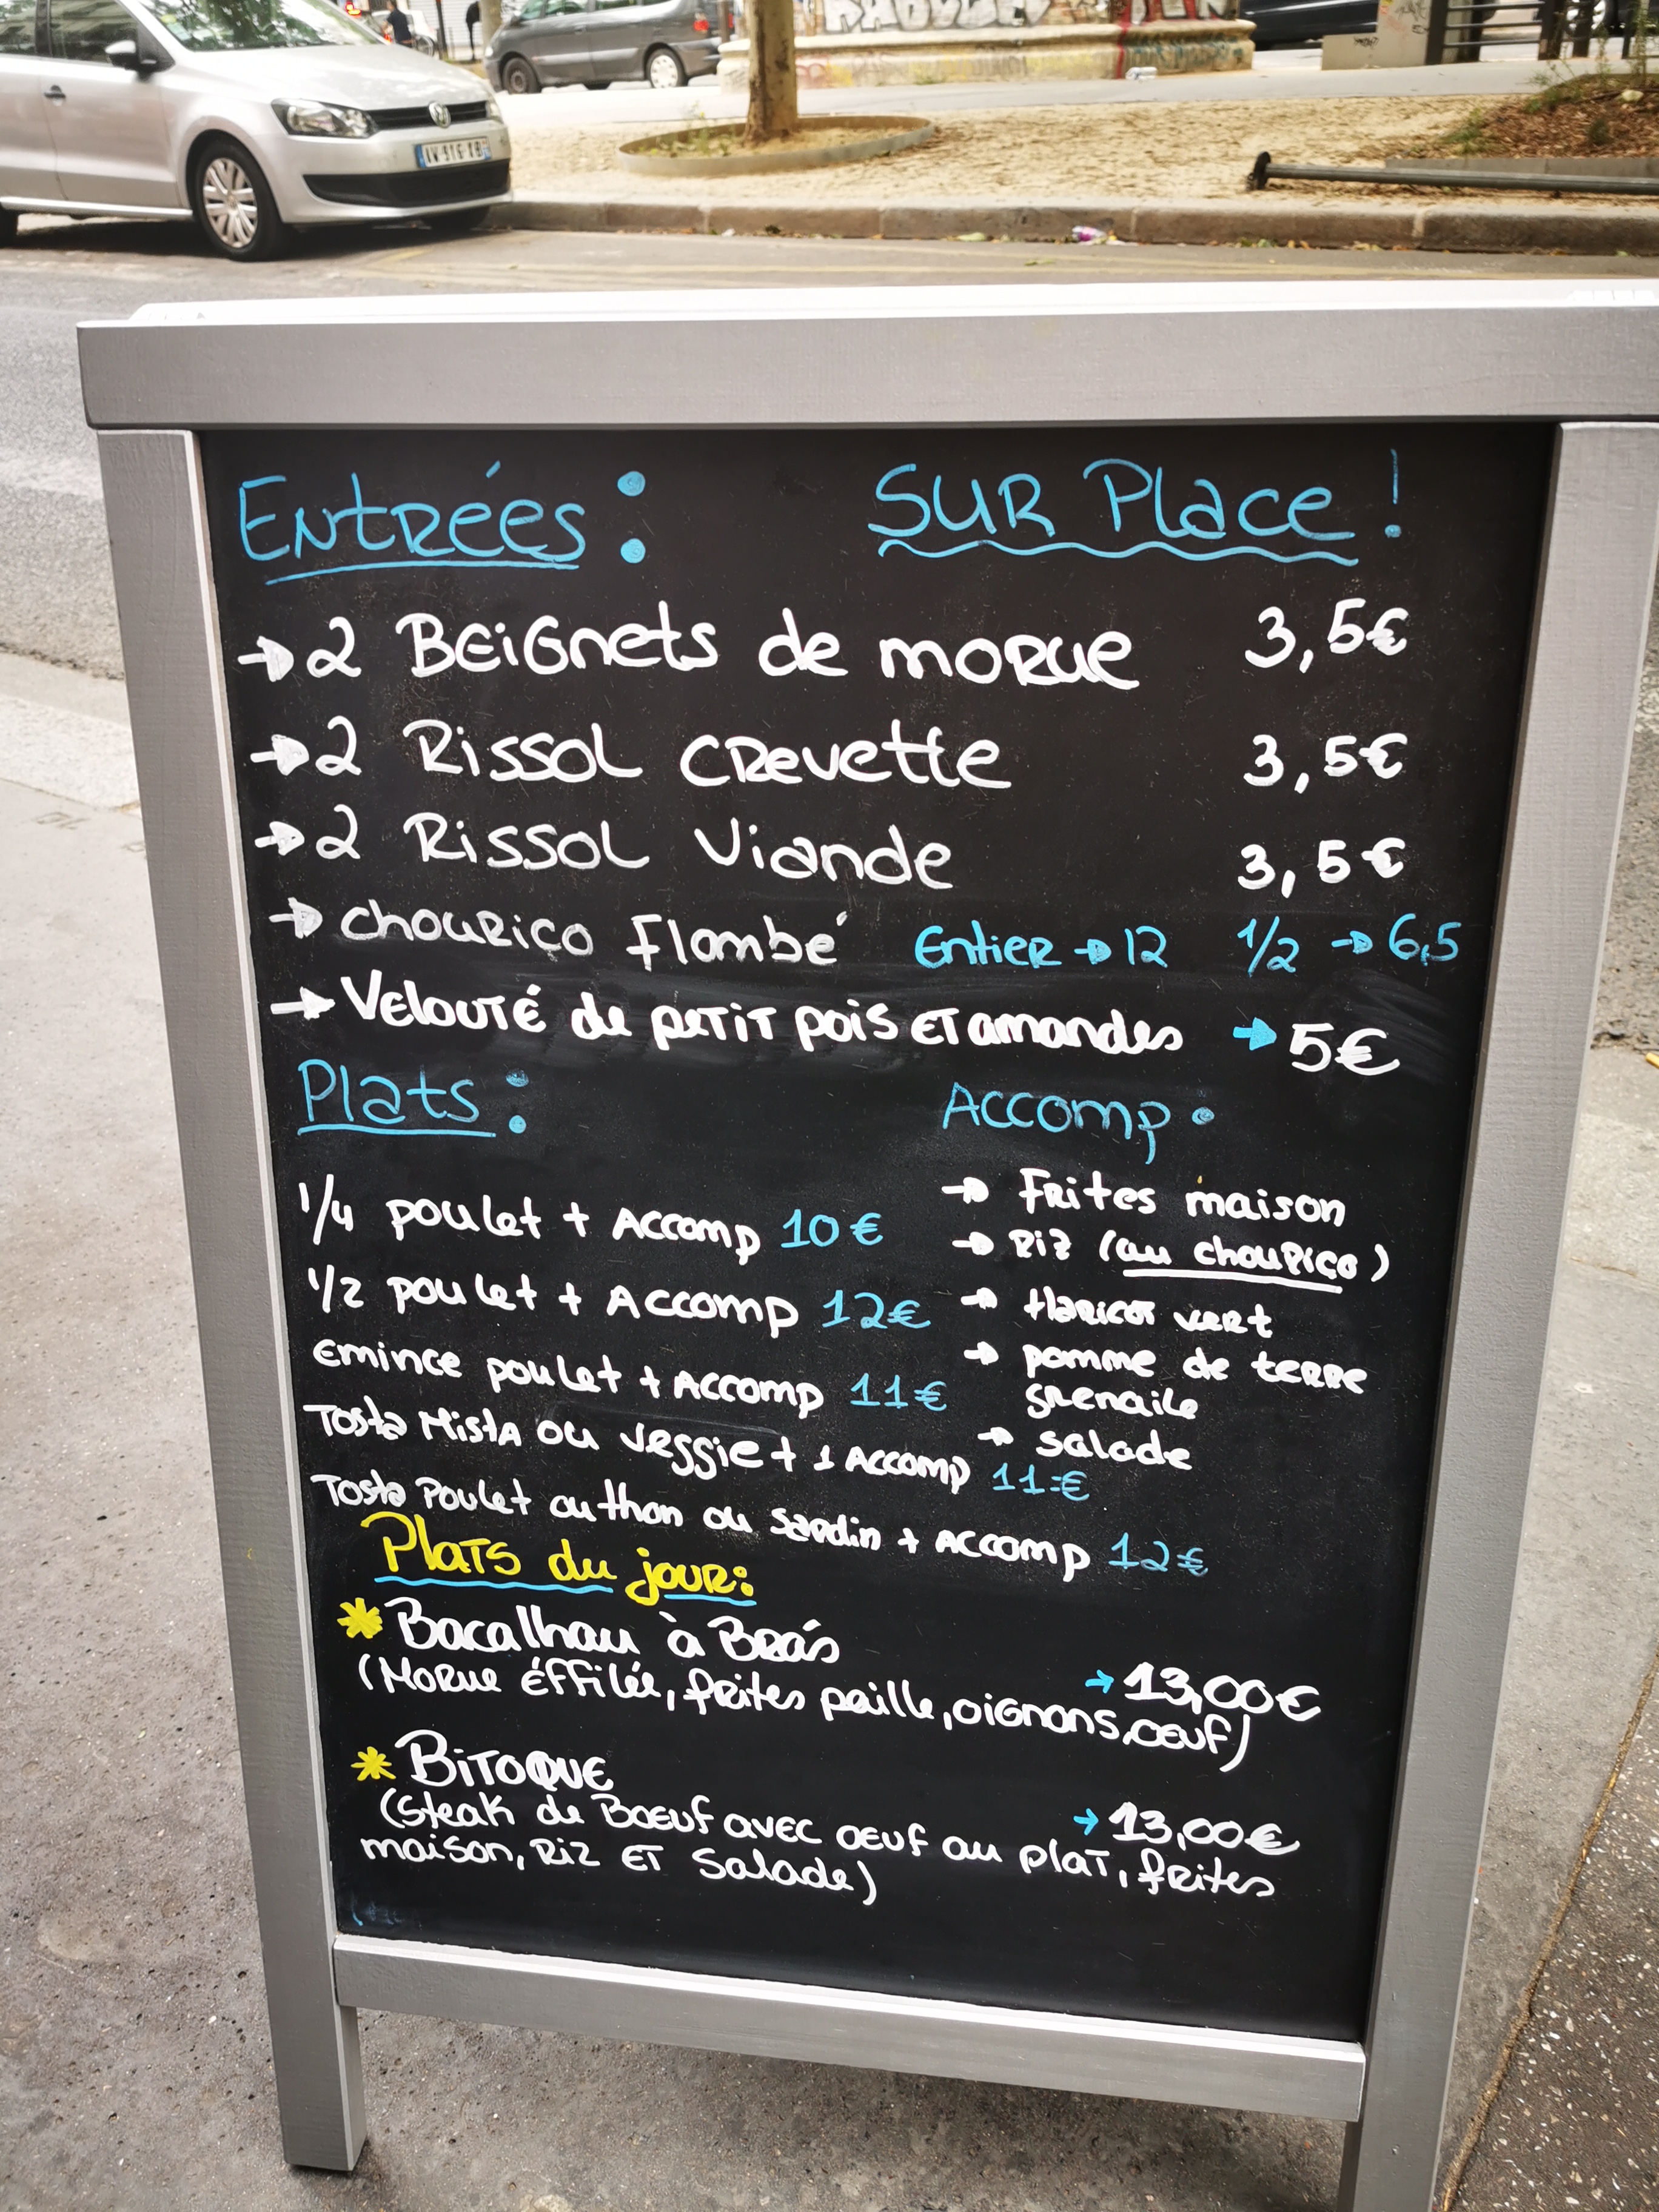 Entrées : SUR Place !
→ 2 Beignets de morue 3,5€
→ 2 Rissol crevette 3,5€
→ 2 Rissol Viande 3,5€
→ chouriço flambé Entier → 12 1/2 → 6,5
→ Velouté de petit pois et amandes → 5€
Plats : Accomp :
1/4 poulet + Accomp 10€
1/2 poulet + Accomp 12€
emince poulet + Accomp 11€
Tosta Mista ou veggie + 1 Accomp 11€
Tosta Poulet ou thon ou sardin + Accomp 12€
→ Frites maison
→ Riz (au chouriço)
→ Haricot vert
→ pomme de terre
grenaile
→ salade
Plats du jour:
* Bacalhau à Brás → 13,00€
(Morue éffilée, frites paille, oignons, oeuf)
* Bitoque → 13,00€
(Steak de Boeuf avec oeuf au plat, frites
maison, riz et salade)